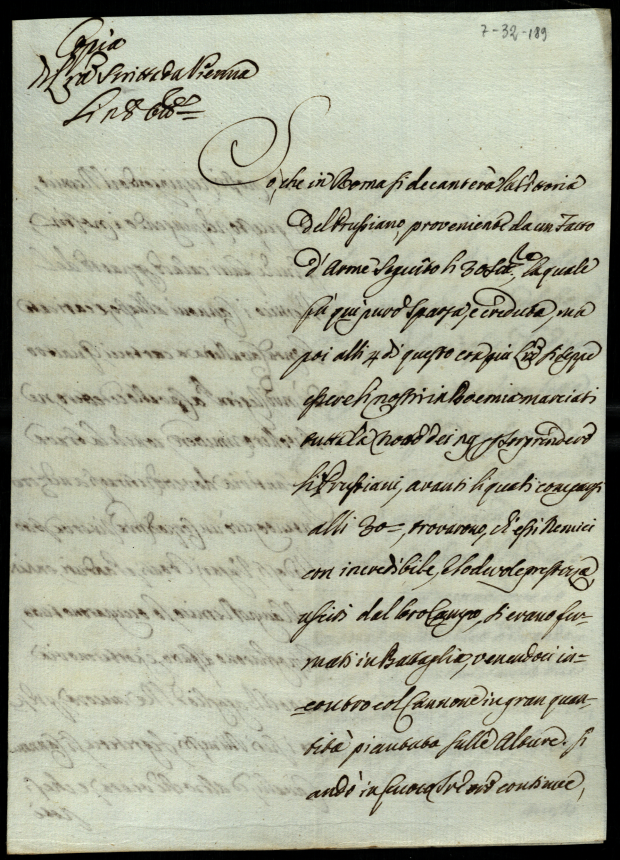 7-32-189
Copia
di Lra scritta da Vienna
li n 8 8bre
So, che in Roma si decanterà la Vittoria
del Prussiano, proveniente da un Fatto
d'Arme seguito li 30 Sett.e, la quale
fù qui pure sparsa, e creduta, ma
poi alli 4 di questo con più si seppe
essere li nostri in Boemia marciati
tutta la Notte dei 29 p sorprendere
li Prussiani, avanti li quali comparsi
alli 30, trovarono, che essi Nemici
con incredibile, e lodevole prestezza
usciti dal loro Campo, si erano for=
mati in Battaglia, venendoci in=
=contro col Cannone in gran quan=
tità piantato sulle Alture. si
andò in fuoco tre ore continue,